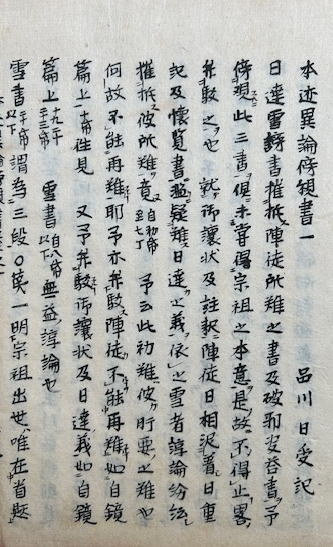 本迹異論傍観書一　品川日受記
日達雪謗書摧抵陣徒所難之書及破邪答書予
傍現此三書俱未嘗得宗祖之本意是故不得止畧
弁駁之也　就讓状及註釈陣徒日相著日重
記及懐覧書盛疑難日達之義依之雪者諄論紛紜
摧抵彼所難竟自初帋至七丁　予云此初難彼肝要之難也
何故不能再難耶予亦弁駁陣徒不能再難如自鏡
篇上十帋往見　又予弁駁讓状及日達義如自鏡
篇上　雪書自八帋以下無益諄論也
雪書十帋以下謂為三段○莫一明宗祖出世唯在首題